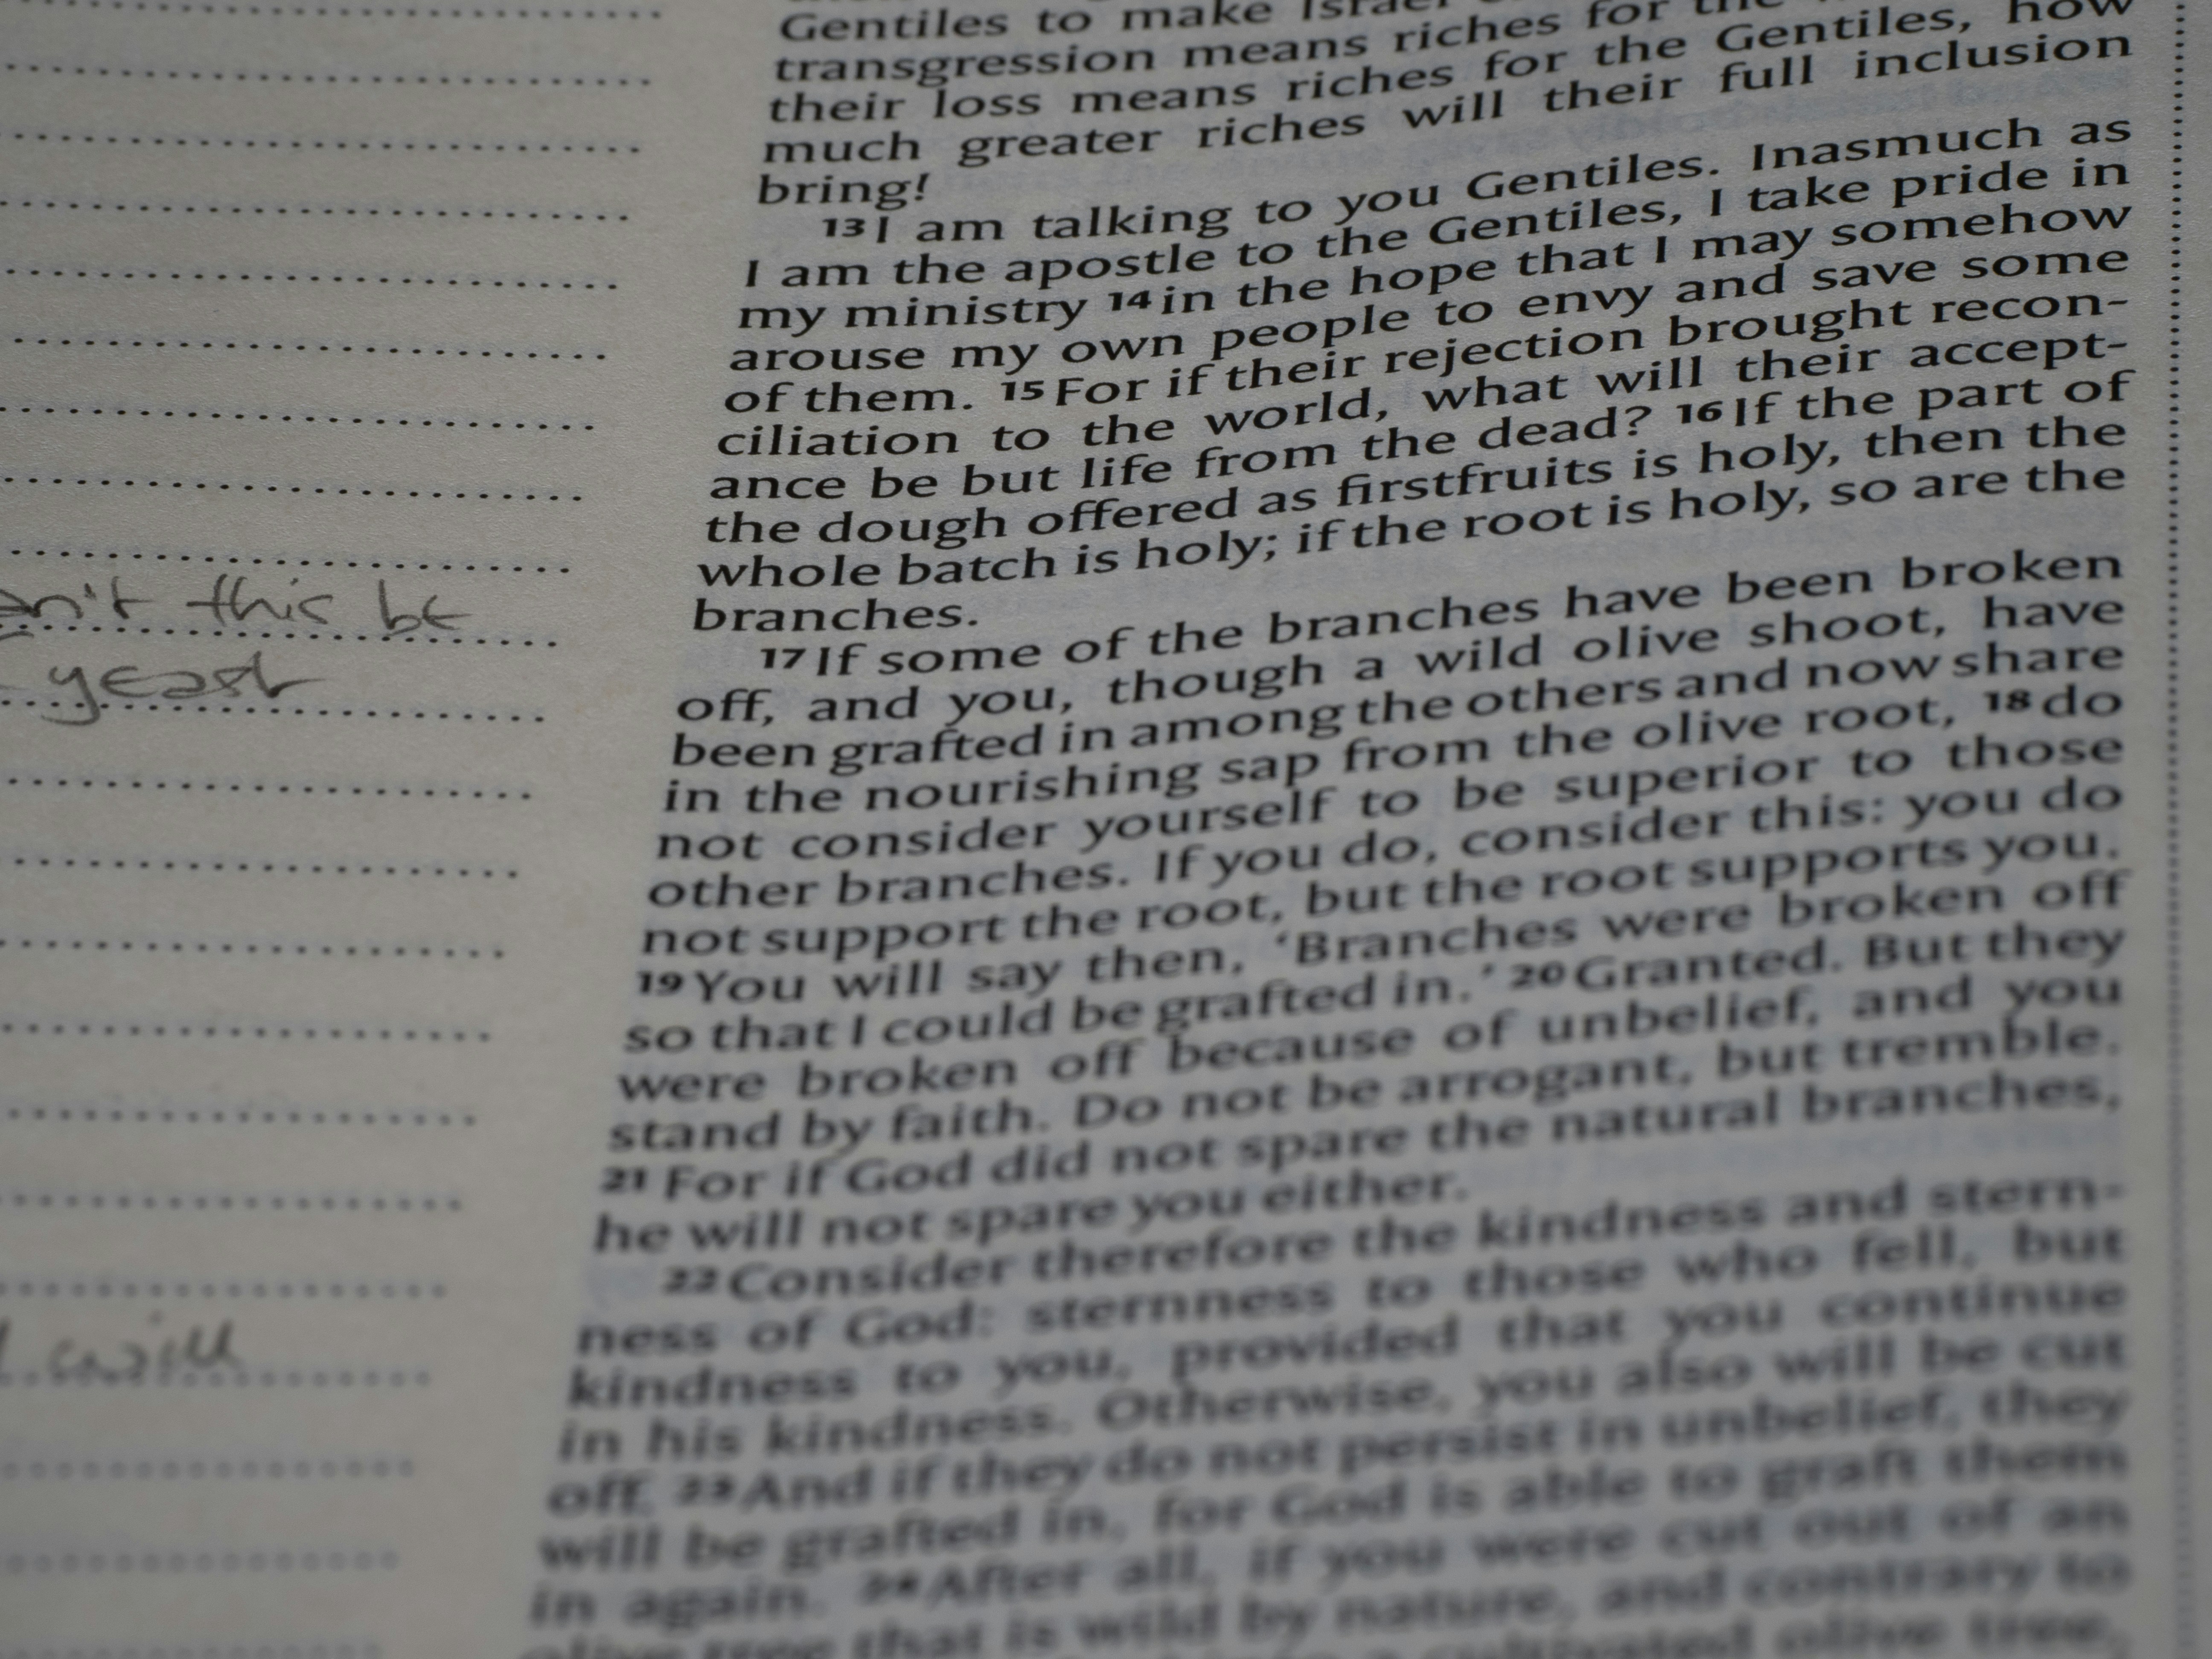 Gentiles to make Israel
transgression means riches for the
their loss means riches for the Gentiles, how
much greater riches will their full inclusion
bring!
13 I am talking to you Gentiles. Inasmuch as
I am the apostle to the Gentiles, I take pride in
my ministry 14 in the hope that I may somehow
arouse my own people to envy and save some
of them. 15 For if their rejection brought recon-
ciliation to the world, what will their accept-
ance be but life from the dead? 16 If the part of
the dough offered as firstfruits is holy, then the
whole batch is holy; if the root is holy, so are the
branches.
17 If some of the branches have been broken
off, and you, though a wild olive shoot, have
been grafted in among the others and now share
in the nourishing sap from the olive root, 18 do
not consider yourself to be superior to those
other branches. If you do, consider this: you do
not support the root, but the root supports you.
19 You will say then, ‘Branches were broken off
so that I could be grafted in.’ 20 Granted. But they
were broken off because of unbelief, and you
stand by faith. Do not be arrogant, but tremble.
21 For if God did not spare the natural branches,
he will not spare you either.
22 Consider therefore the kindness and stern-
ness of God: sternness to those who fell, but
kindness to you, provided that you continue
in his kindness. Otherwise, you also will be cut
off. 23 And if they do not persist in unbelief, they
will be grafted in, for God is able to graft them
in again. 24 After all, if you were cut out of an
olive tree that is wild by nature, and contrary to
cultivated olive tree,
this be
yeast
will